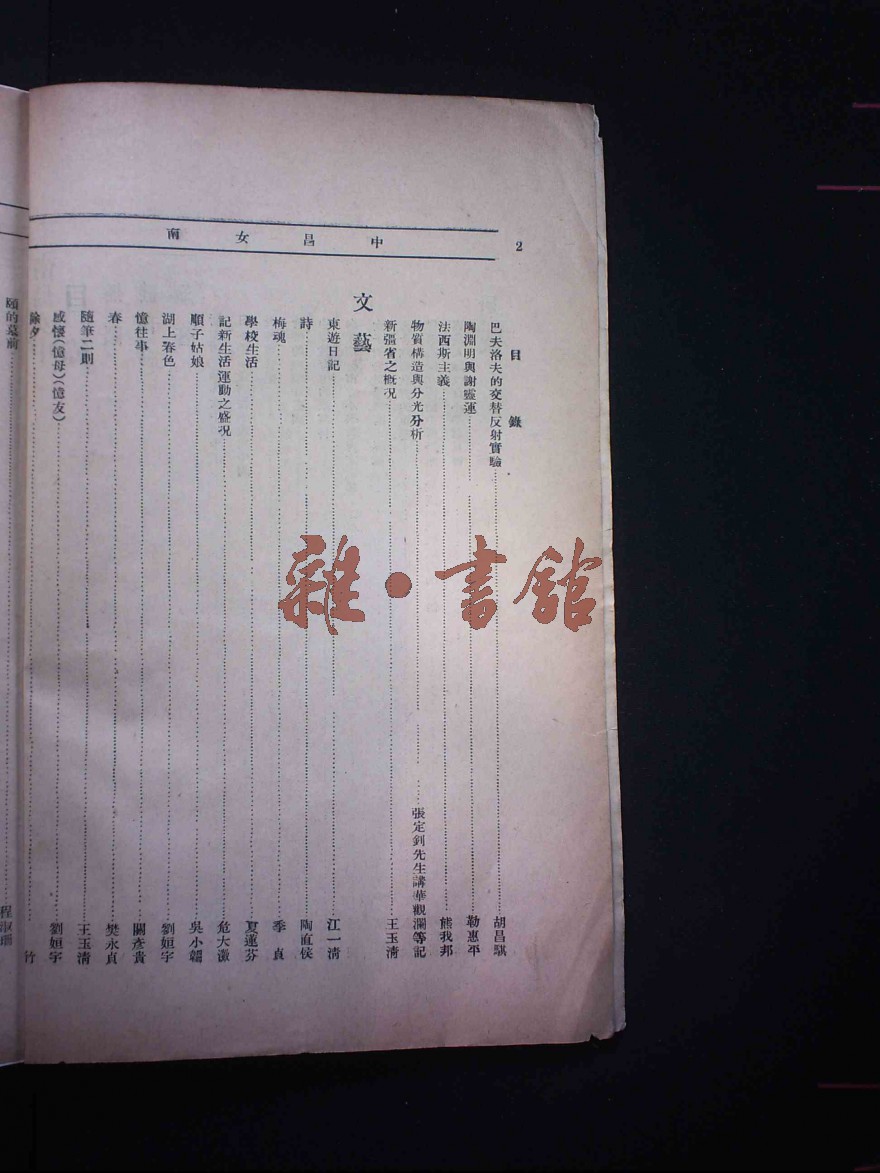 2
中昌女南
目錄
巴夫洛夫的交替反射實驗……胡昌騏
陶淵明與謝靈運……勒惠平
法西斯主義……熊我邦
物質構造與分光分析……張定釗先生講華觀瀾等記
新疆省之概況……王玉清
文藝
東遊日記……江一清
詩……陶直侯
梅魂……季貞
學校生活……夏蓮芬
記新生活運動之盛況……危大澂
順子姑娘……吳小韞
湖上春色……劉姮宇
憶往事……關彥貴
春……樊永貞
隨筆二則……王玉清
感懷(憶母)(憶友)……劉姮宇
除夕……竹
頤的墓前……程淑珊
雜·書館